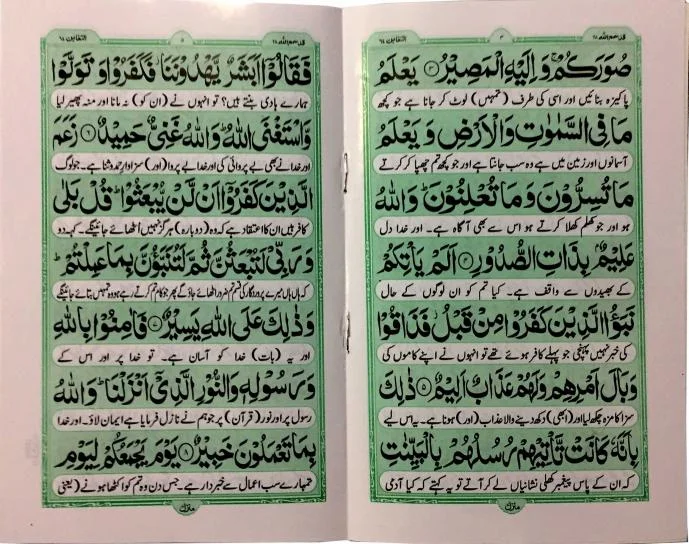 قد سمع اللہ ۲۸
التغابن ۶۴
صُوَرَكُمْ ۚ وَاِلَيْهِ الْمَصِيْرُ يَعْلَمُ
پاکیزہ بنائیں اور اسی کی طرف (تمہیں) لوٹ کر جانا ہے جو کچھ
مَا فِى السَّمٰوٰتِ وَالْاَرْضِ وَيَعْلَمُ
آسمانوں اور زمین میں ہے وہ سب جانتا ہے اور جو کچھ تم چھپا کر کرتے
مَا تُسِرُّوْنَ وَمَا تُعْلِنُوْنَ ؕ وَاللّٰهُ
ہو اور جو کھلم کھلا کرتے ہو اس سے بھی آگاہ ہے۔ اور خدا دل
عَلِيْمٌۢ بِذَاتِ الصُّدُوْرِ اَلَمْ يَاْتِكُمْ
کے بھیدوں سے واقف ہے۔ کیا تم کو ان لوگوں کے حال
نَبَؤُا الَّذِيْنَ كَفَرُوْا مِنْ قَبْلُ فَذَاقُوْا
کی خبر نہیں پہنچی جو پہلے کافر ہوئے تھے تو انہوں نے اپنے کاموں کی
وَبَالَ اَمْرِهِمْ وَلَهُمْ عَذَابٌ اَلِيْمٌ ذٰلِكَ
سزا کا مزہ چکھ لیا اور (ابھی) دکھ دینے والا عذاب (اور) ہونا ہے۔ یہ اس لیے
بِاَنَّهٗ كَانَتْ تَّاْتِيْهِمْ رُسُلُهُمْ بِالْبَيِّنٰتِ
کہ ان کے پاس پیغمبر کھلی نشانیاں لے کر آتے تو یہ کہتے کہ کیا آدمی
منزل
قد سمع اللہ ۲۸
التغابن ۶۴
فَقَالُوْۤا اَبَشَرٌ يَّهْدُوْنَنَا فَكَفَرُوْا وَتَوَلَّوْا
ہمارے ہادی بنتے ہیں؟ تو انہوں نے (ان کو) نہ مانا اور منہ پھیر لیا
وَّاسْتَغْنَى اللّٰهُ ؕ وَاللّٰهُ غَنِىٌّ حَمِيْدٌ زَعَمَ
اور خدا نے بھی بے پروائی کی اور خدا بے پروا (اور) سزاوارِ حمد و ثنا ہے۔ جو لوگ
الَّذِيْنَ كَفَرُوْۤا اَنْ لَّنْ يُّبْعَثُوْا ؕ قُلْ بَلٰى
کافر ہیں ان کا اعتقاد ہے کہ وہ (دوبارہ) ہرگز نہیں اٹھائے جائینگے۔ کہہ دو
وَرَبِّىْ لَتُبْعَثُنَّ ثُمَّ لَتُنَبَّؤُنَّ بِمَا عَمِلْتُمْ ؕ
کہ ہاں ہاں میرے پروردگار کی قسم تم ضرور اٹھائے جاؤ گے پھر جو کام تم کرتے رہے ہو وہ تمہیں بتائے جائینگے
وَذٰلِكَ عَلَى اللّٰهِ يَسِيْرٌ فَاٰمِنُوْا بِاللّٰهِ
اور یہ (بات) خدا کو آسان ہے۔ تو خدا پر اور اس کے
وَرَسُوْلِهٖ وَالنُّوْرِ الَّذِىْۤ اَنْزَلْنَا ؕ وَاللّٰهُ
رسول پر اور نور (قرآن) پر جو ہم نے نازل فرمایا ہے ایمان لاؤ۔ اور خدا
بِمَا تَعْمَلُوْنَ خَبِيْرٌ يَوْمَ يَجْمَعُكُمْ لِيَوْمِ
تمہارے سب اعمال سے خبردار ہے۔ جس دن وہ تم کو اکٹھا ہونے (یعنی
منزل